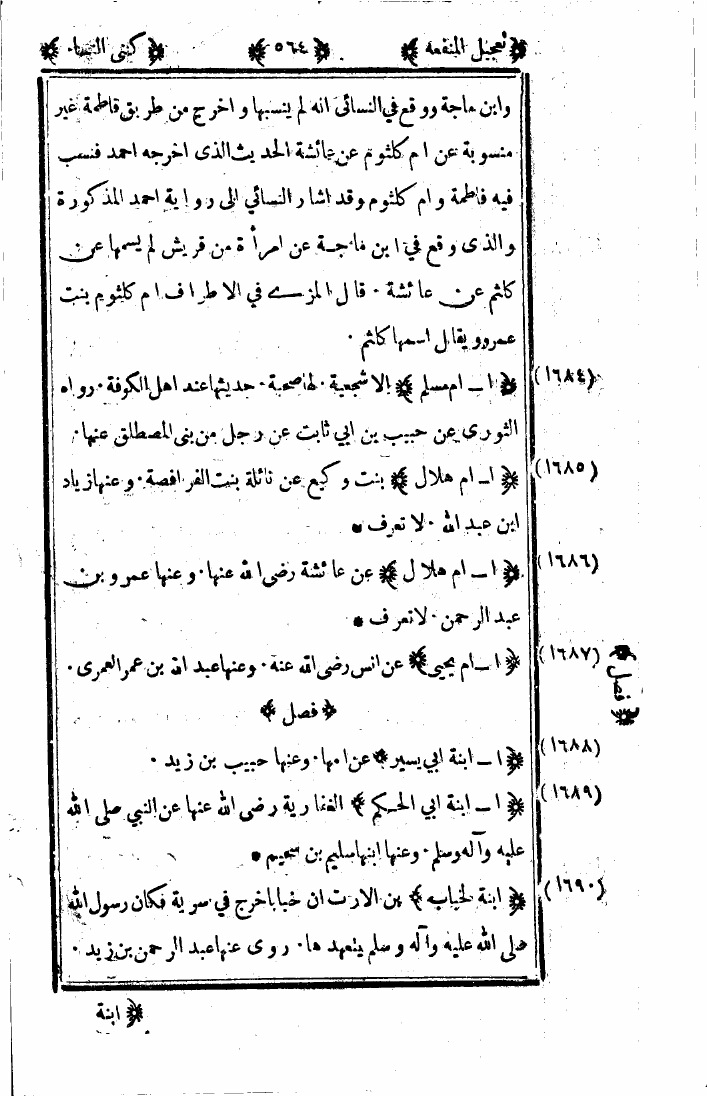 ﴿ تعجيل المنفعة ﴾ ﴿ ٥٦٤ ﴾ ﴿ كنى النساء ﴾
وابن ماجة ووقع في النسائى انه لم ينسبها واخرج من طريق فاطمة غير
منسوبة عن ام كلثوم عن عائشة الحديث الذى اخرجه احمد فنسب
فيه فاطمة وام كلثوم وقد اشار النسائي الى رواية احمد المذكورة
والذى وقع في ابن ماجة عن امرأة من قريش لم يسمها عن
كلثم عن عائشة · قال المزى في الاطراف ام كلثوم بنت
عمرو ويقال اسمها كلثم ·
(١٦٨٤) ﴿ ا ـ ام مسلم ﴾ الاشجعية · لها صحبة · حديثها عند اهل الكوفة · رواه
الثورى عن حبيب بن ابي ثابت عن رجل من بنى المصطلق عنها ·
(١٦٨٥) ﴿ ا ـ ام هلال ﴾ بنت وكيع عن نائلة بنت الفرافصة · وعنها زياد
ابن عبد الله · لا تعرف *
(١٦٨٦) ﴿ ا ـ ام هلال ﴾ عن عائشة رضى الله عنها · وعنها عمرو بن
عبد الرحمن · لا تعرف *
(١٦٨٧) ﴿ ا ـ ام يحيى ﴾ عن انس رضى الله عنه · وعنها عبد الله بن عمر العمرى ·
﴿ فصل ﴾
﴿ فصل ﴾
(١٦٨٨) ﴿ ا ـ ابنة ابي يسير ﴾ عن امها · وعنها حبيب بن زيد ·
(١٦٨٩) ﴿ ا ـ ابنة ابي الحكم ﴾ الغفارية رضى الله عنها عن النبي صلى الله
عليه وآله وسلم · وعنها ابنها سليم بن سحيم *
(١٦٩٠) ﴿ ابنة لخباب ﴾ بن الارت ان خبابا خرج في سرية فكان رسول الله
صلى الله عليه وآله وسلم يتعهدها · روى عنها عبد الرحمن بن زيد ·
﴿ ابنة